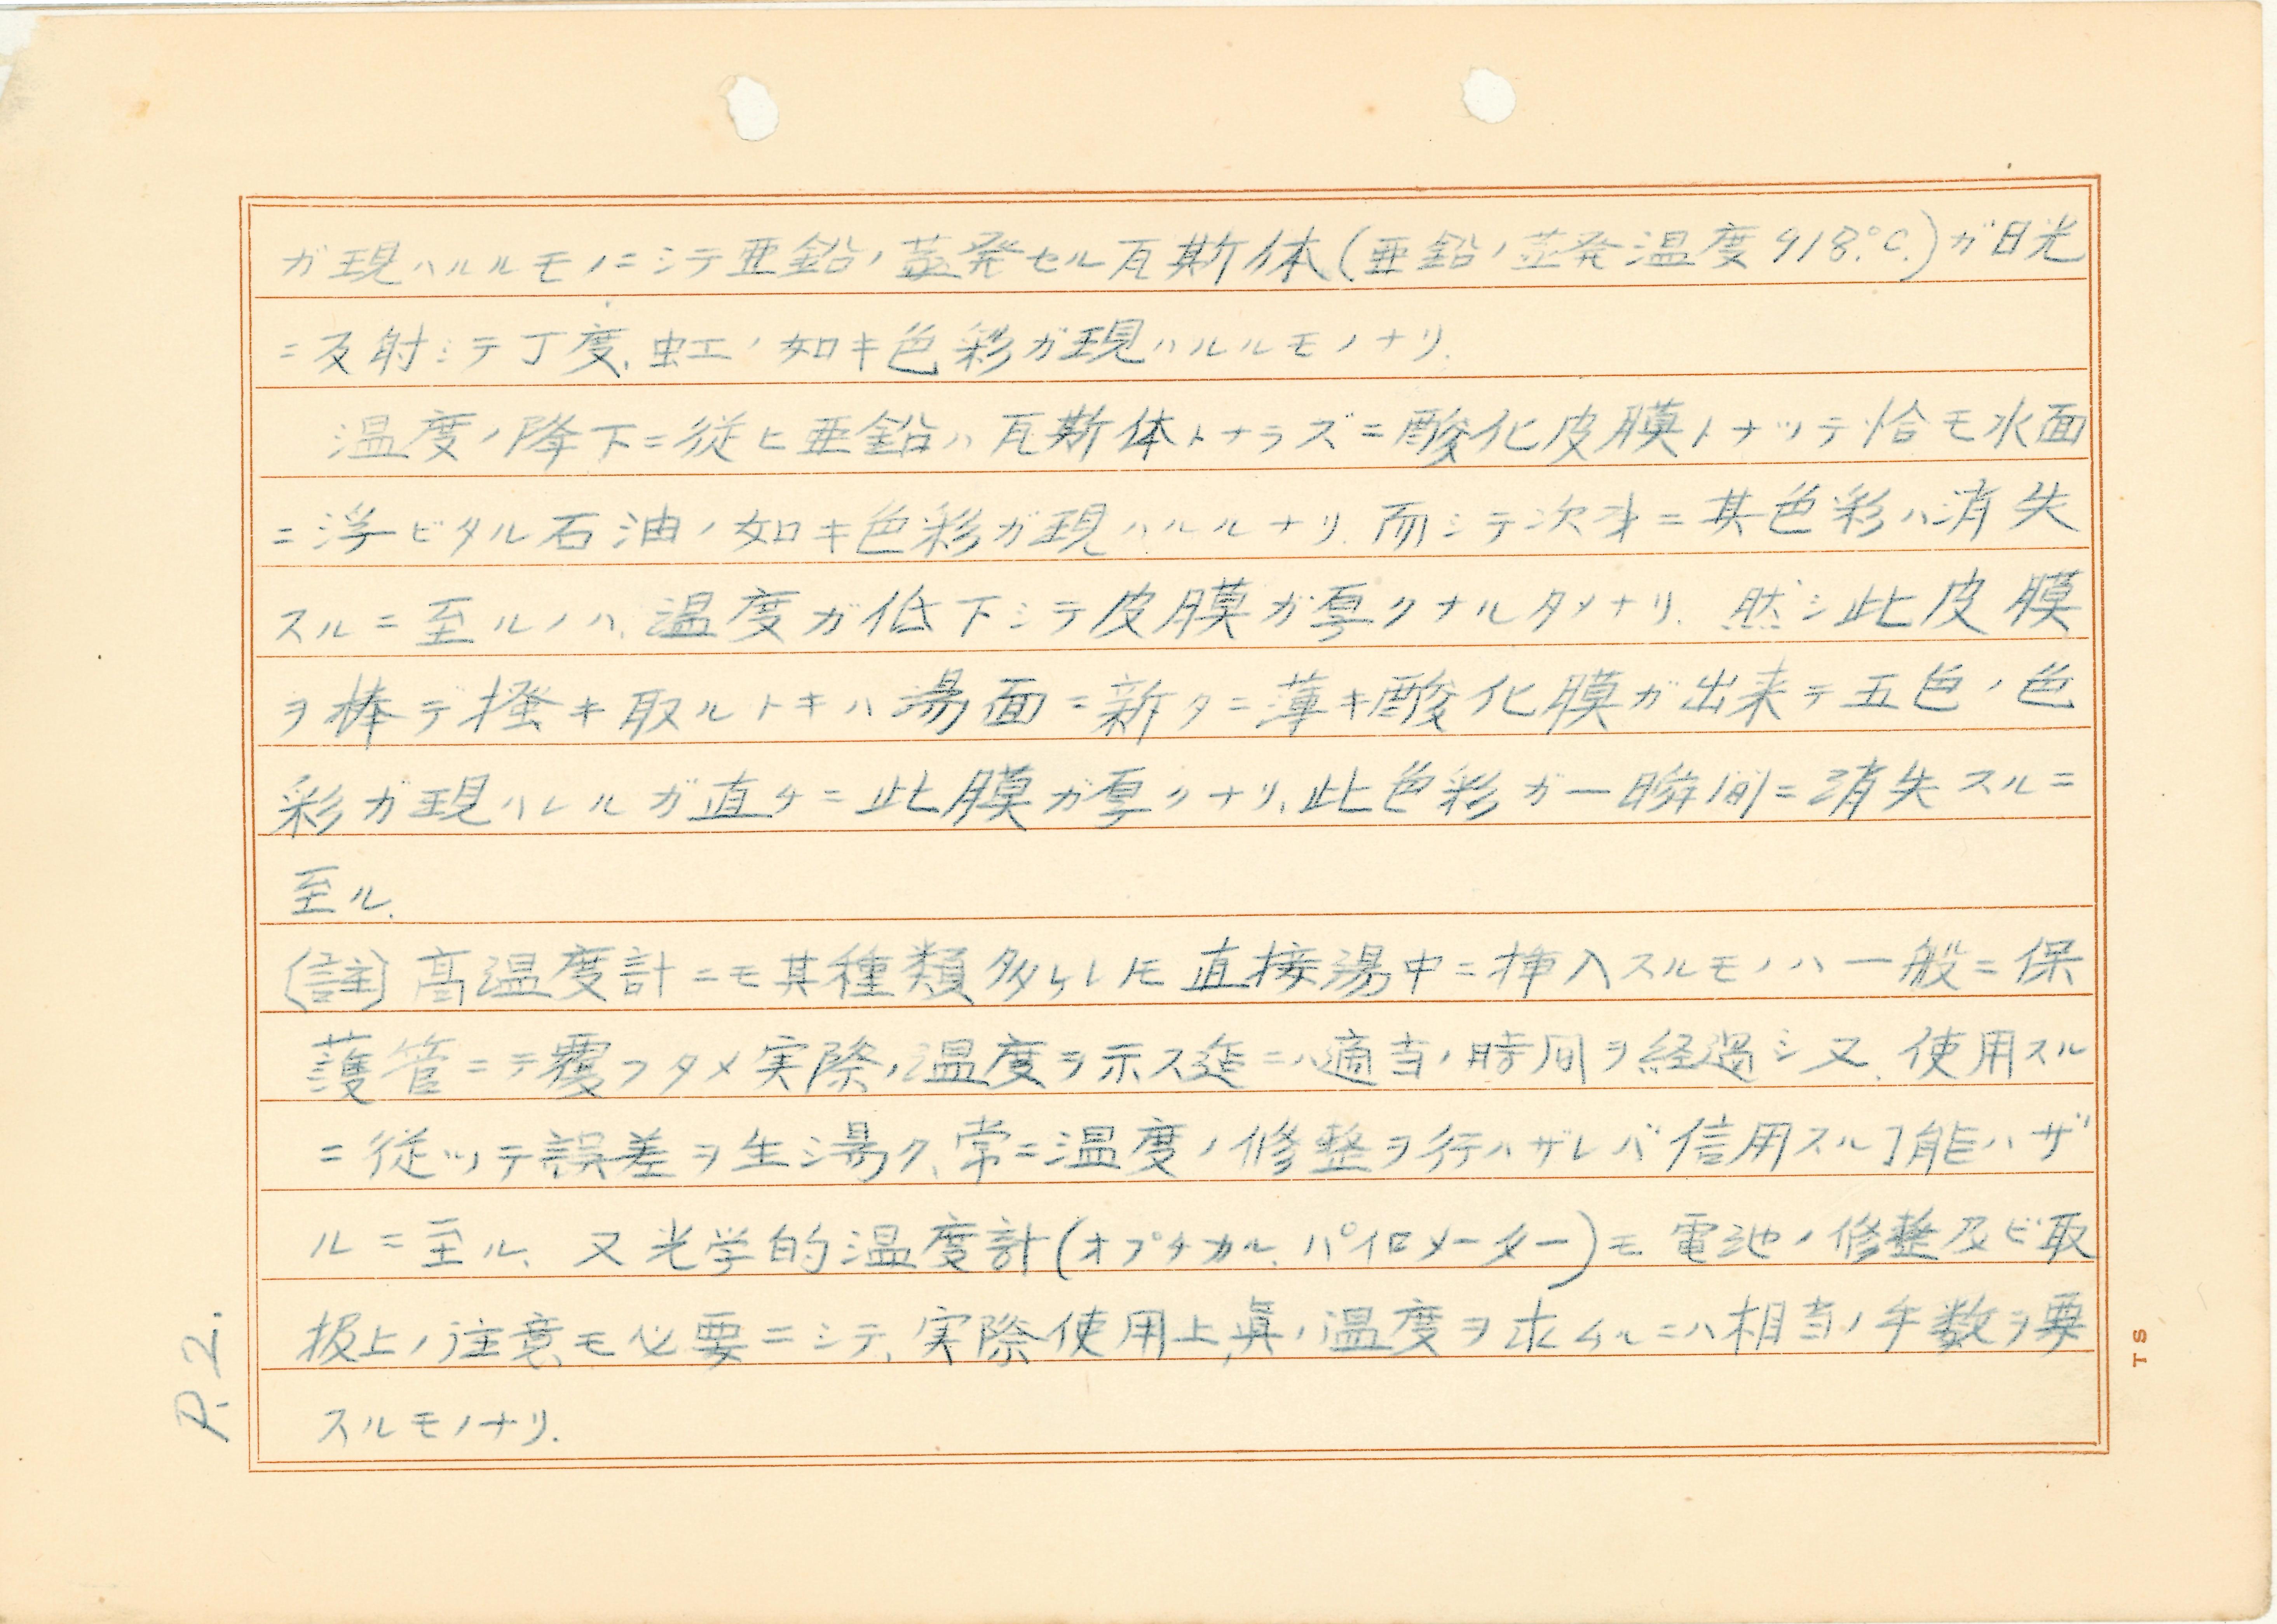 ガ現ハルルモノニシテ亜鉛ノ蒸発セル瓦斯体(亜鉛ノ蒸発温度918.°C.)ガ日光
ニ反射シテ丁度、虹ノ如キ色彩ガ現ハルルモノナリ.
温度ノ降下ニ従ヒ亜鉛ハ瓦斯体トナラズニ酸化皮膜トナッテ恰モ水面
ニ浮ビタル石油ノ如キ色彩ガ現ハルルナリ.而シテ次オニ其色彩ハ消失
スルニ至ルノハ、温度ガ低下シテ皮膜ガ厚クナルタメナリ. 然シ此皮膜
ヲ棒デ掻キ取ルトキハ湯面ニ新タニ薄キ酸化膜ガ出来テ五色ノ色
彩ガ現ハレルガ直チニ此膜ガ厚クナリ、此色彩ガ一瞬間ニ消失スルニ
至ル.
〔註〕高温度計ニモ其種類多ケレ𪜈直接湯中ニ挿入スルモノハ一般ニ保
護管ニテ覆フタメ実際ノ温度ヲ示ス迄ニハ適当ノ時間ヲ経過シ又、使用スル
ニ従ッテ誤差ヲ生シ易ク、常ニ温度ノ修整ヲ行ハザレバ信用スルヿ能ハザ
ルニ至ル、又光学的温度計(オプチカル、パイロメーター)モ電池ノ修整及ビ取
扱上ノ注意モ必要ニシテ、実際使用上、眞ノ温度ヲ求ムルニハ相当ノ手数ヲ要
スルモノナリ.
P.2.
TS